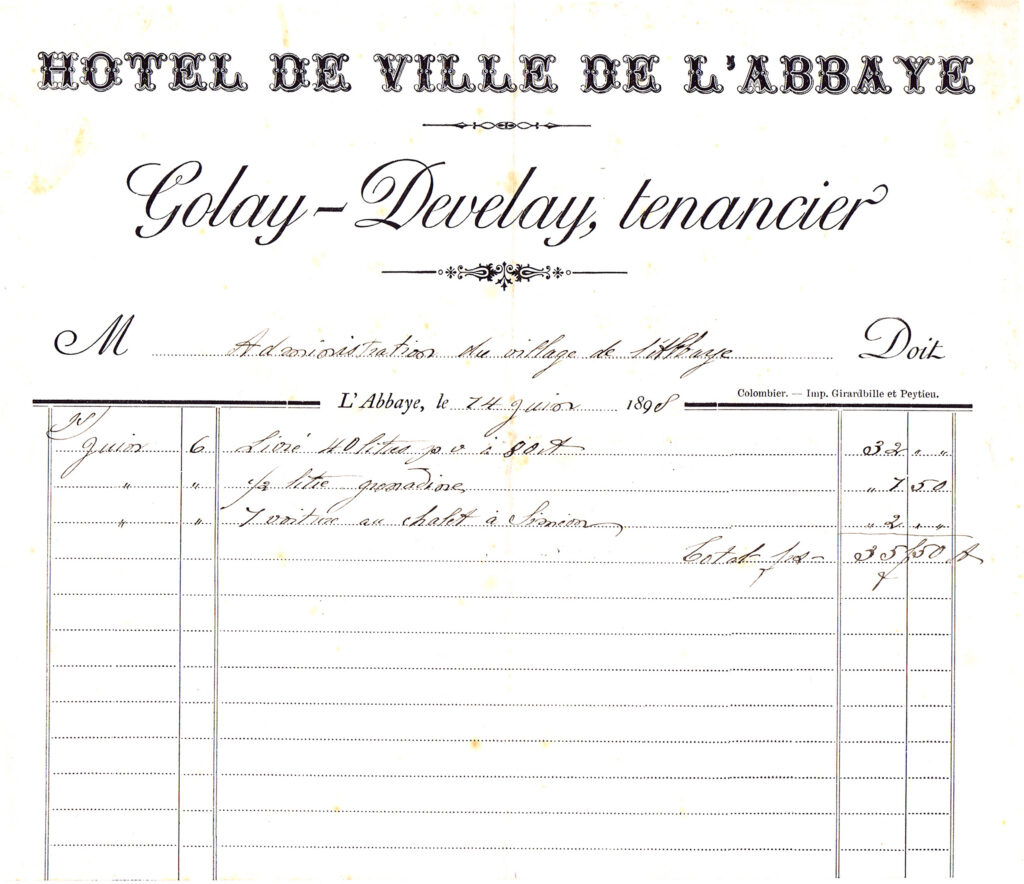 HOTEL DE VILLE DE L'ABBAYE
Golay-Develay, tenancier
M Administration du village de l'Abbaye Doit
L'Abbaye, le 14 Juin 1898
Colombier. — Imp. Girardbille et Peytieu.
98
Juin 6 Livré 40 litres p v à 80 ct 32 " "
" " 1/2 litre grenadine " 1 50
" " 1 voiture au chalet à Siméon " 2 " "
Total frs 35 50 ct